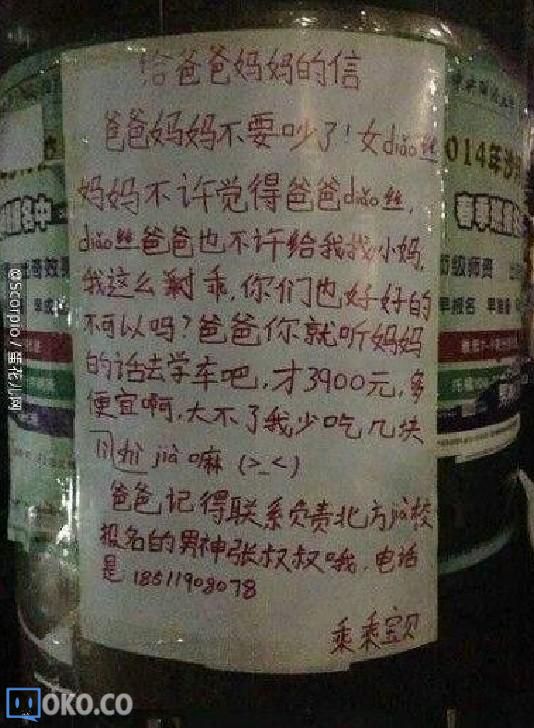 给爸爸妈妈的信
爸爸妈妈不要吵了！女diǎo丝
妈妈不许觉得爸爸diǎo丝，
diǎo丝爸爸也不许给我找小妈，
我这么乖，你们也好好的
不可以吗？爸爸你就听妈妈
的话去学车吧，才3900元，多
便宜啊，大不了我少吃几块
jià嘛（>_<）
爸爸记得联系负责北方jià校
报名的男神张叔叔哦，电话
是18511908078
乘乘宝贝
014年
春季班
级师资
早报名
名中
@Scorpio / 蛋花儿网
OKO.CO